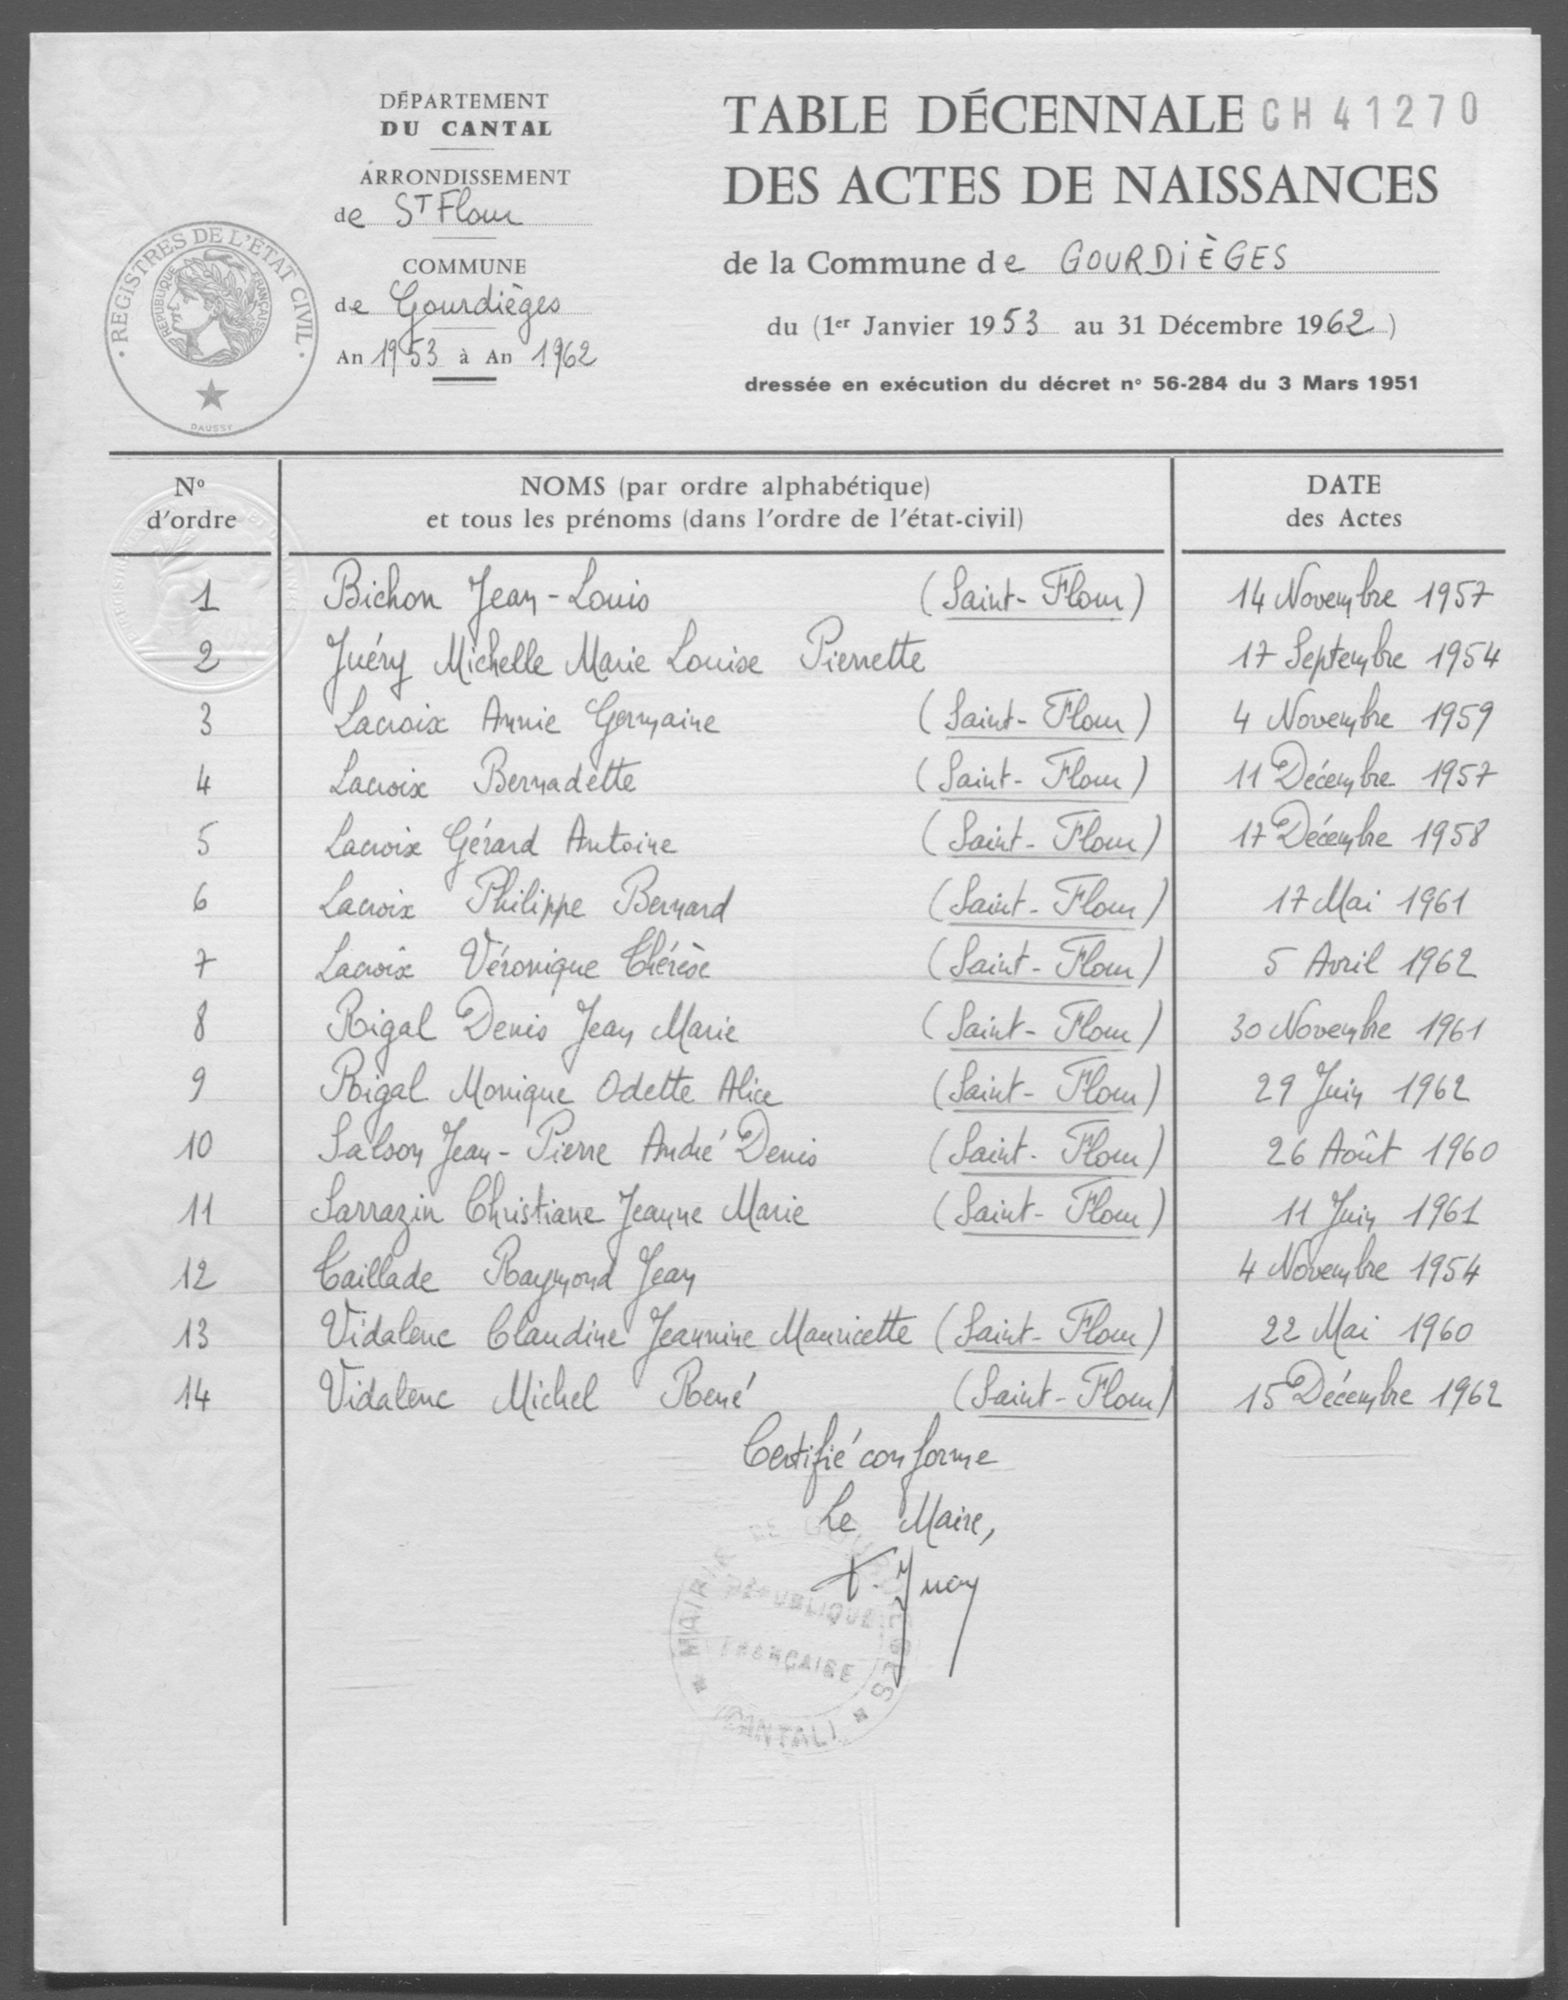 DÉPARTEMENT
DU CANTAL
ARRONDISSEMENT
de St Flour
COMMUNE
de Gourdièges
An 1953 à An 1962
REGISTRES DE L'ÉTAT CIVIL
RÉPUBLIQUE FRANÇAISE
DAUSSY
TABLE DÉCENNALE CH 41270
DES ACTES DE NAISSANCES
de la Commune de GOURDIÈGES
du (1er Janvier 1953 au 31 Décembre 1962)
dressée en exécution du décret n° 56-284 du 3 Mars 1951
N° d'ordre NOMS (par ordre alphabétique) et tous les prénoms (dans l'ordre de l'état-civil) DATE des Actes
1 Bichon Jean-Louis (Saint-Flour) 14 Novembre 1957
2 Juéry Michelle Marie Louise Pierrette 17 Septembre 1954
3 Lacroix Annie Germaine (Saint-Flour) 4 Novembre 1959
4 Lacroix Bernadette (Saint-Flour) 11 Décembre 1957
5 Lacroix Gérard Antoine (Saint-Flour) 17 Décembre 1958
6 Lacroix Philippe Bernard (Saint-Flour) 17 Mai 1961
7 Lacroix Véronique Thérèse (Saint-Flour) 5 Avril 1962
8 Rigal Denis Jean Marie (Saint-Flour) 30 Novembre 1961
9 Rigal Monique Odette Alice (Saint-Flour) 29 Juin 1962
10 Salson Jean-Pierre André Denis (Saint-Flour) 26 Août 1960
11 Sarrazin Christiane Jeanne Marie (Saint-Flour) 11 Juin 1961
12 Taillade Raymond Jean 4 Novembre 1954
13 Vidalenc Claudine Jeannine Mauricette (Saint-Flour) 22 Mai 1960
14 Vidalenc Michel René (Saint-Flour) 15 Décembre 1962
Certifié conforme
Le Maire,
MAIRIE DE GOURDIÈGES
RÉPUBLIQUE
FRANÇAISE
(CANTAL)